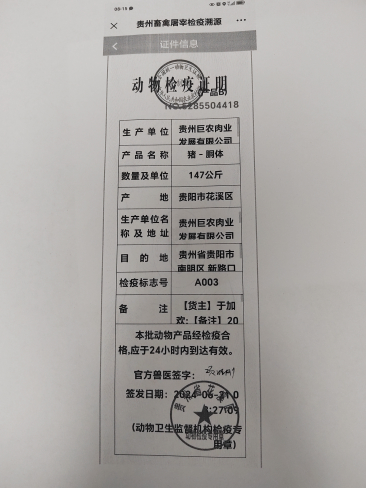 贵州畜禽屠宰检疫溯源
证件信息
动物检疫证明
(产品B)
NO.5285504418
生产单位 贵州巨农肉业
发展有限公司
产品名称 猪-胴体
数量及单位 147公斤
产地 贵阳市花溪区
生产单位名 贵州巨农肉业
称及地址 发展有限公司
目的地 贵州省贵阳市
南明区 新路口
检疫标志号 A003
备注 【货主】于加
欢;【备注】20
本批动物产品经检疫合
格,应于24小时内到达有效。
官方兽医签字:
签发日期: 2024-06-21 0
:27:09
(动物卫生监督机构检疫专
用章)